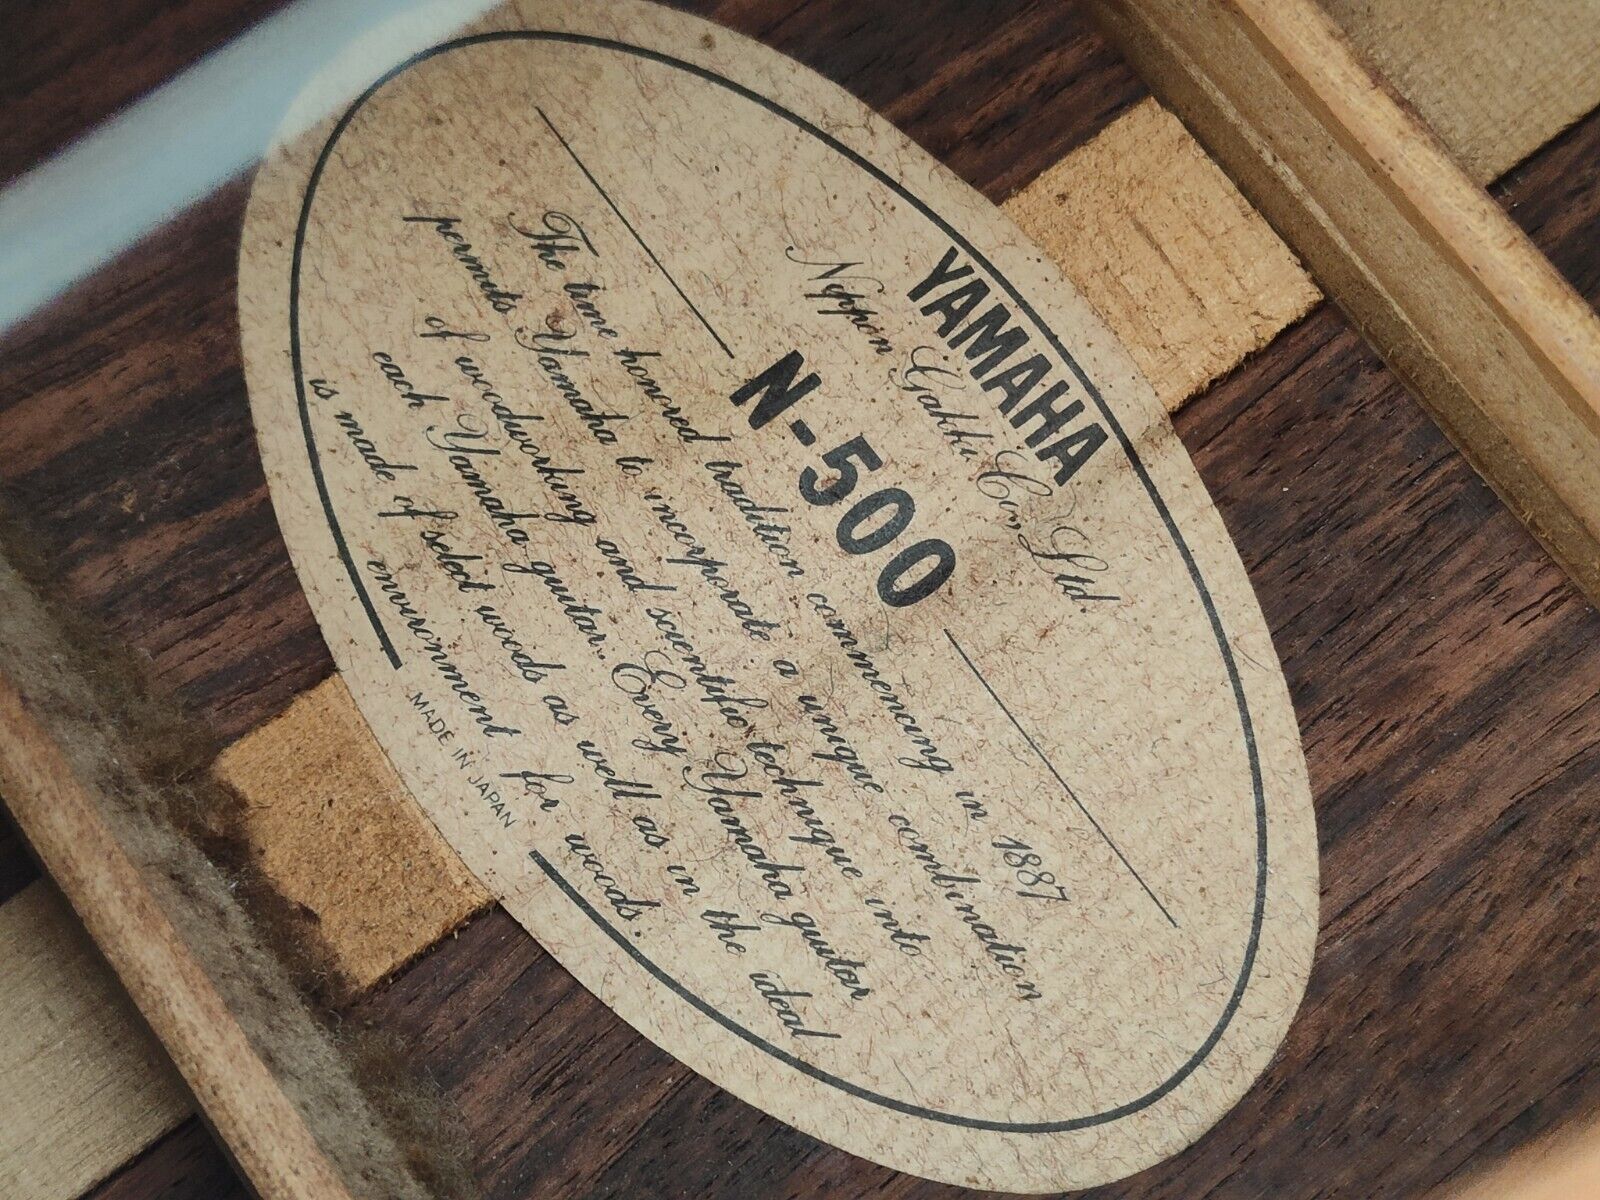 YAMAHA
Nippon Gakki Co., Ltd.
N-500
The time honored tradition commencing in 1887
permits Yamaha to incorporate a unique combination
of woodworking and scientific technique into
each Yamaha guitar. Every Yamaha guitar
is made of select woods as well as in the ideal
environment for woods.
MADE IN JAPAN